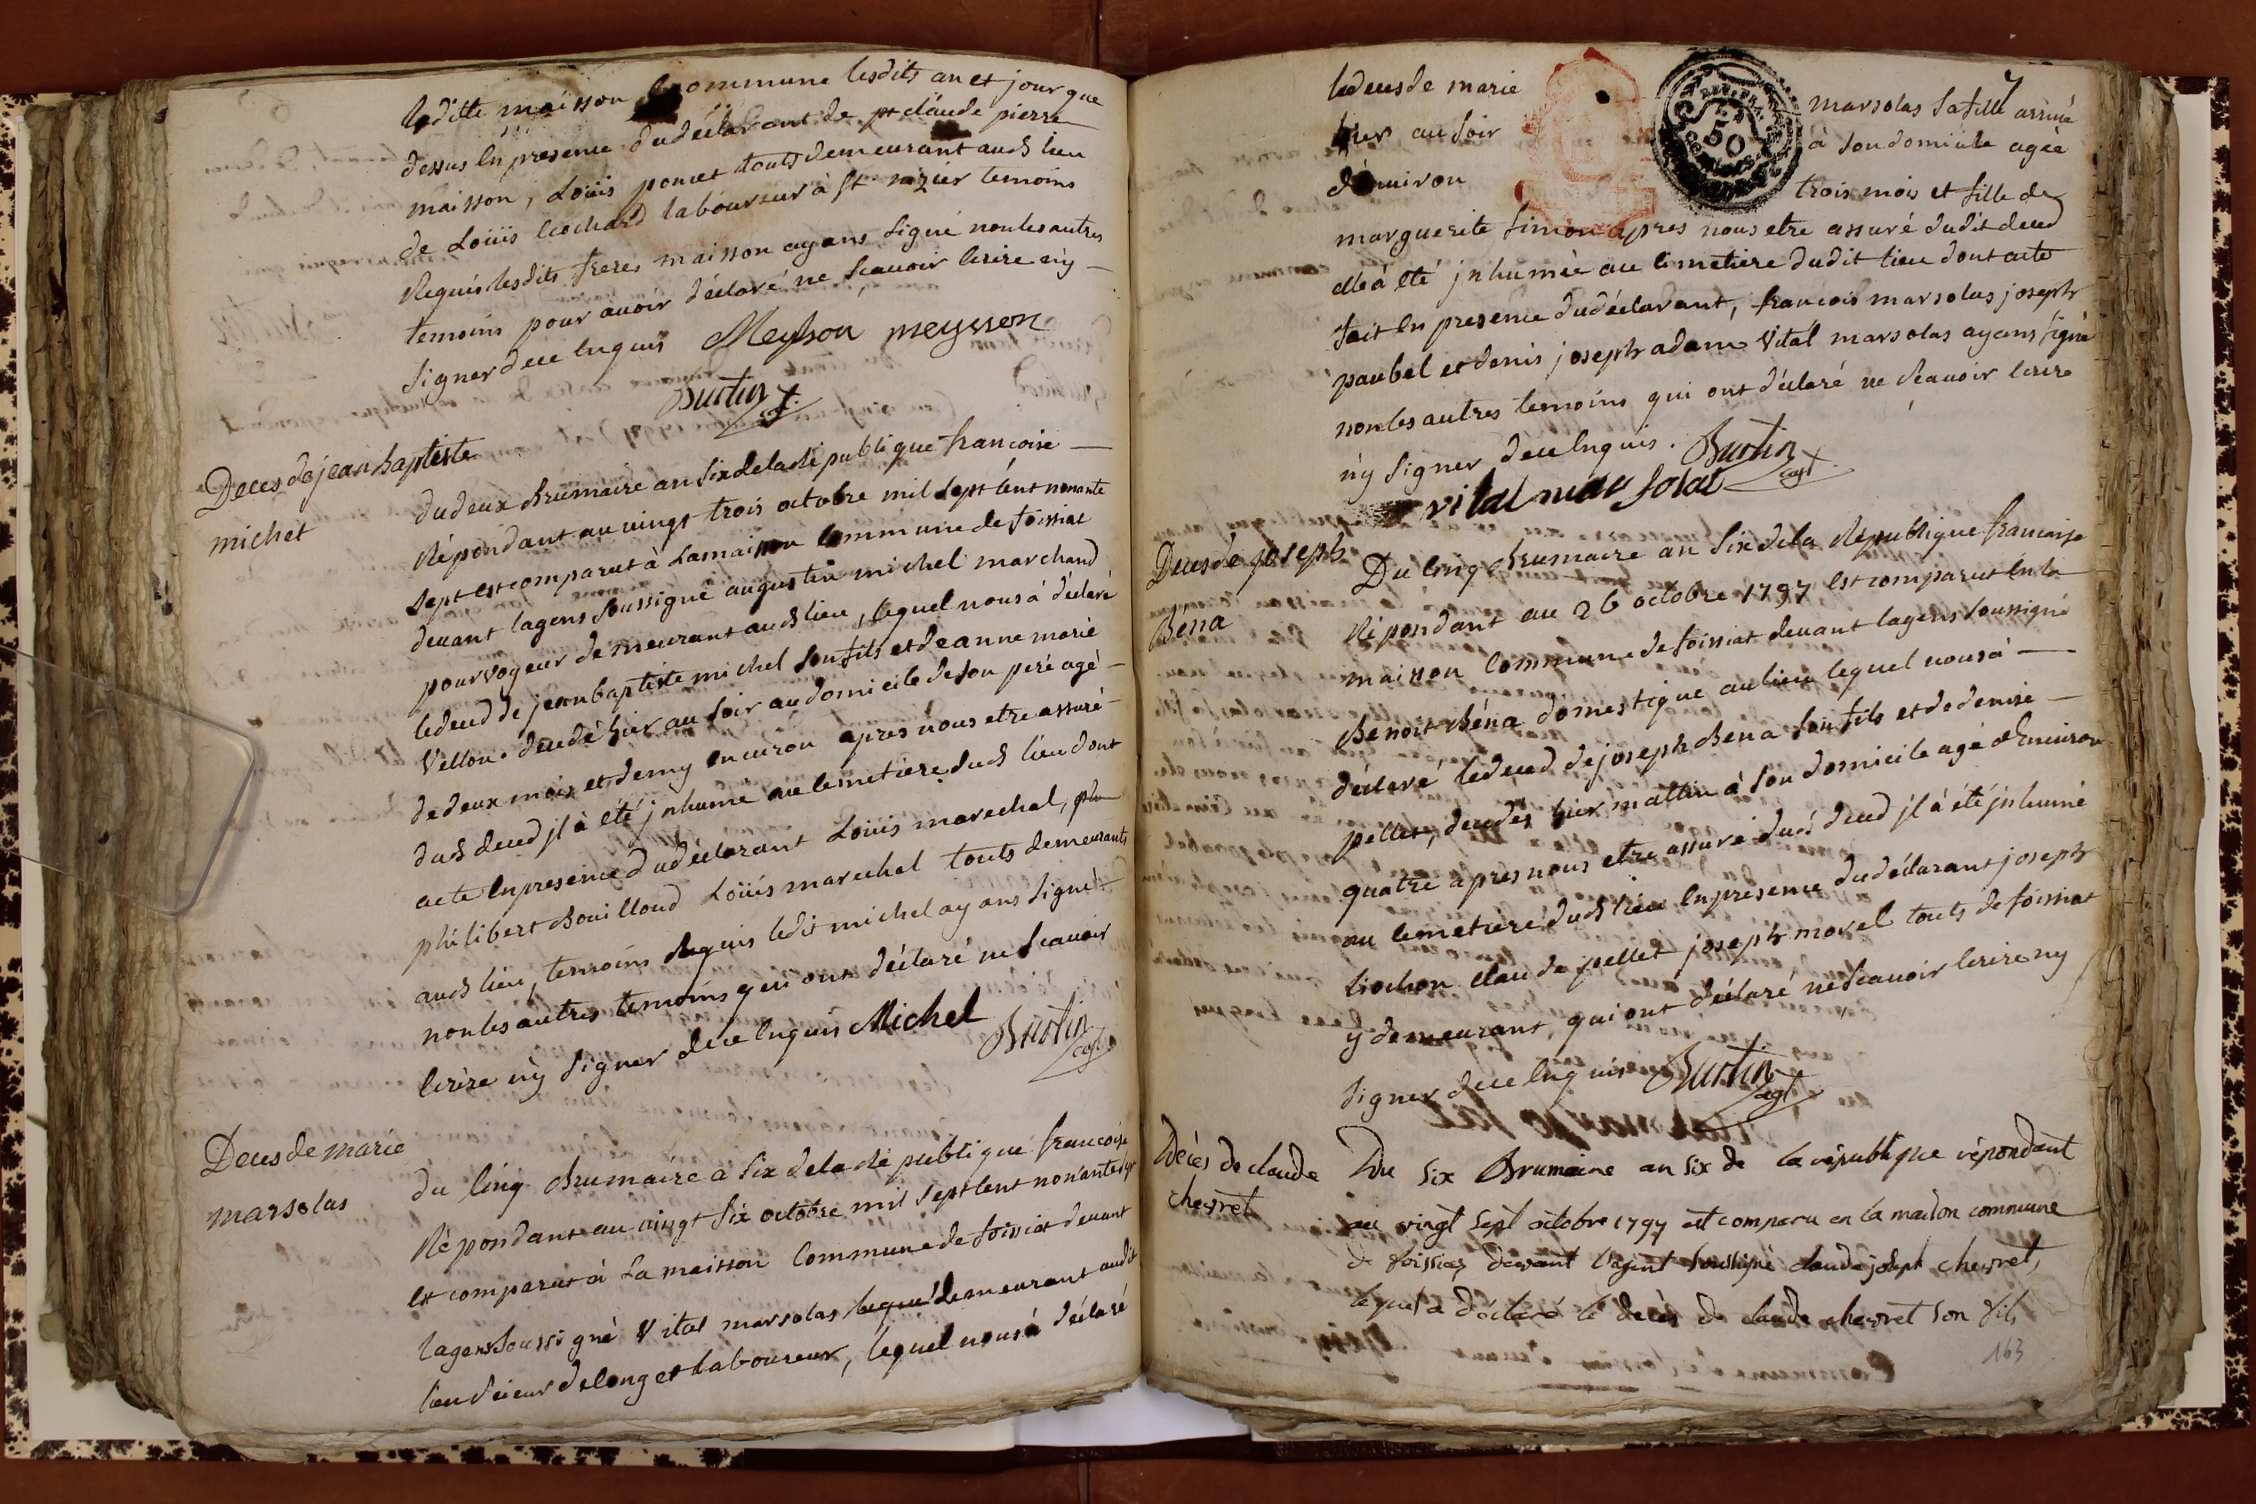 leditte maisson commune lesdits an et jour que
dessus en presence dudéclarant de pt claude pierre
maisson, Loüis poncet touts demeurant audt lieu
de Loüis cochard laboureur à st nizier temoins
Requis lesdits freres maisson ayans signé non les autres
temoins pour avoir déclaré ne scavoir lerire ny
signer dece enquis Meyson meysson
Burtin agt
Deces de jean baptiste
michel
du deux Brumaire an six de la Republique francoise
Répondant au vingt trois octobre mil sept cent nonante
sept est comparut à Lamaisson commune de foissiat
devant lagent soussigné augustin michel marchand
pourvoyeur demeurant audt lieu, lequel nous à déclaré
ledeced de jeanbaptiste michel son fils et deanne marie
Vellon decedé hier au soir au domicile de son peré agé
de deux mois et demy environ apres nous etre assuré
dudt deced jl à eté jnhume au cemetiere dudt lieu dont
acte enpresence dudéclarant Loüis marechal,
philibert Bouilloud Loüis marechal touts demeurants
audt lieu, temoins requis ledit michel ayans signé
non les autres temoins qui ont déclaré ne scavoir
lerire ny signer dece enquis Michel Burtin agt
Deces de marie
marsolas
du cinq Brumaire a six dela Republique francoise
Répondant au vingt six octobre mil sept cent nonante sept
est comparut à La maisson commune de foissiat devant
lagent soussigné Vital marsolas lequel demeurant audit
lieu scieur delong et laboureur, lequel nous à déclaré
ledeces de marie marsolas sa fille arrivé
hier au soir à son domicile agée
d'environ trois mois et fille de
marguerite simon apres nous etre assuré dudit deced
elle à eté jnhumée au cemetiere dudit lieu dont acte
fait en presence dudéclarant, francois marsolas joseph
paubel et denis joseph adam Vital marsolas ayans signé
non les autres temoins qui ont déclaré ne scavoir lerire
ny signer dece enquis. Burtin agt
vital marsolat
Deces de joseph
Béna
Du cinq Brumaire an six dela Republique francaise
Répondant au 26 octobre 1797 est comparut en la
maison commune de foissiat devant lagent soussigné
Benoit Béna domestique au lieu lequel nous à
déclaré ledeced de joseph Bena son fils et de denise
pellet, decedés hier mattin à son domicile agé d'Environ
quatre apres nous etre assuré dudt deced jl à été jnhumé
au cemetiere dudt lieu enpresence dudéclarant joseph
cochon claude pellet joseph morel touts de foissiat
y demeurant, qui ont déclaré ne scavoir lerire ny
signer dece enquis Burtin agt
Décès de claude
chevret
Du six Brumaire an six de la république répondant
au vingt sept octobre 1797 est comparu en la maison commune
de foissiaz devant l'agent soussigné claude joseph chevret,
lequel a déclaré le decès de claude chevret son fils
163